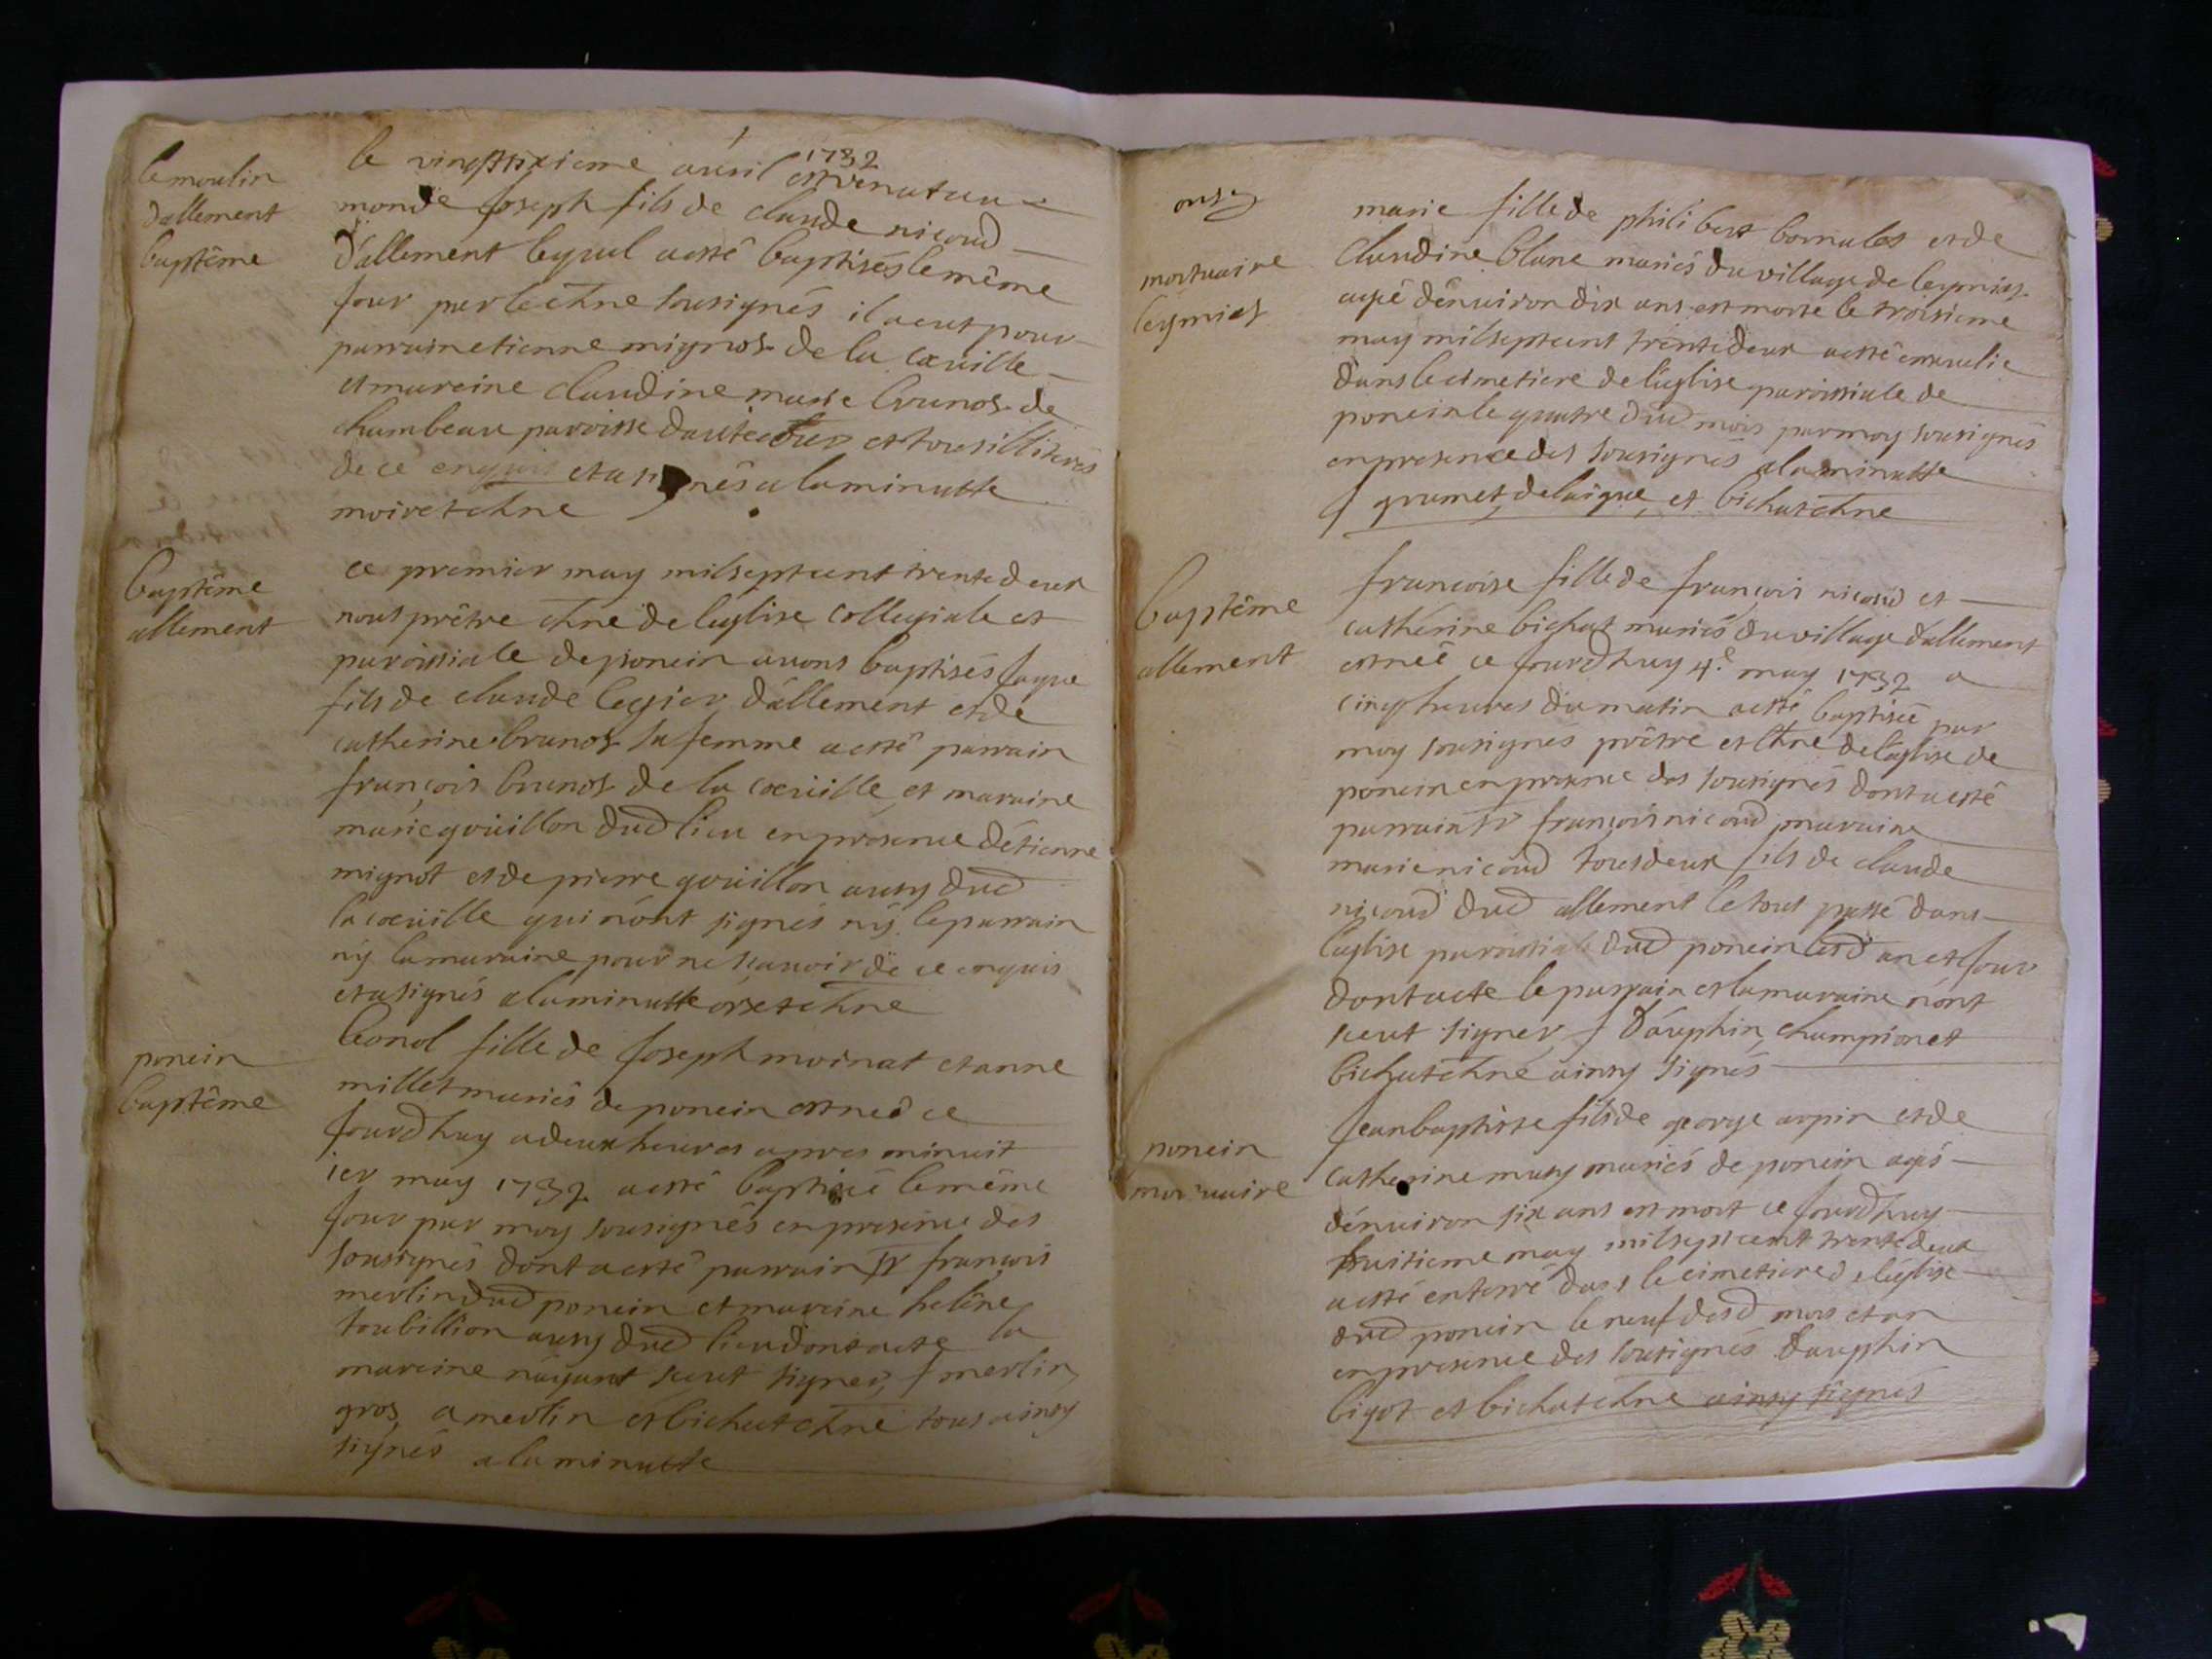 le moulin
dallement
baptême
le vingtsixieme auril 1732 est venut au
monde Joseph fils de claude nicoud
d'allement lequel a esté baptisés le même
jour par le chne sousignés il a eut pour
parrain etienne mignot de la coeuille
et mareine claudine marie brunot de
chambeau paroisse dautecour et tous illiterés
de ce enquis et a signés a la minutte
moiret chne
baptême
allement
ce premier may milseptcent trentedeux
nous prêtre chne de leglise collegiale et
paroissiale de poncin auons baptisés Jaque
fils de claude legier d'allement et de
catherine brunot sa femme a esté parrain
françois brunot de la coeuille et maraine
marie goüillon dud lieu en presence d'étienne
mignot et de pierre goüillon aussy dud
la coeuille qui n'ont signés nÿ le parrain
nÿ la maraine pour ne scauoir de ce enquis
et a signés a la minutte orset chne
poncin
baptême
leonol fille de Joseph moinat et anne
millet mariés de poncin est neé ce
jourdhuy a deux heures apres minuit
ier may 1732 a esté baptisée le même
jour par moy sousignés en presence des
sousignés dont a esté parrain sr françois
merlin dud poncin et mareine helêne
toubillion aussy dud lieu dont acte la
mareine n'ayant sceut signer, f merlin,
gros, a merlin et bichat chne tous ainsy
signés a la minutte
mortuaire
leymiat
marie fille de philibert bornulat et de
claudine blanc mariés du village de leymiat
agée d'enuiron dix ans est morte le troisieme
may milseptcent trentedeux a esté enseuelie
dans le cimetiere de l'eglise paroissiale de
poncin le quatre dud mois par moy sousignés
en presence des sousignés a la minutte
f grumet, delaigue, et bichat chne
baptême
allement
francoise fille de françois nicoud et
catherine bichat mariés du village d'allement
est neé ce jourdhuy 4e may 1732 a
cinq heures du matin a esté baptisée par
moy sousignés prêtre et chne de l'eglise de
poncin en presence des sousignés dont a esté
parrain sr françois nicoud maraine
marie nicoud tous deux fils de claude
nicoud dud allement le tout passé dans
l'eglise paroissiale dud poncin lesd an et jour
dont acte le parrain et la maraine n'ont
sceut signer f Dauphin, championet
bichat chne ainsy signés
poncin
mortuaire
Jean baptiste fils de george arpin et de
catherine mury mariés de poncin agés
d'enuiron six ans est mort ce jourdhuy
huitieme may milseptcent trentedeux
a esté enterré dans le cimetiere de l'eglise
dud poncin le neuf desd mois et an
en presence des sousignés Dauphin
bigot et bichat chne ainsy signés